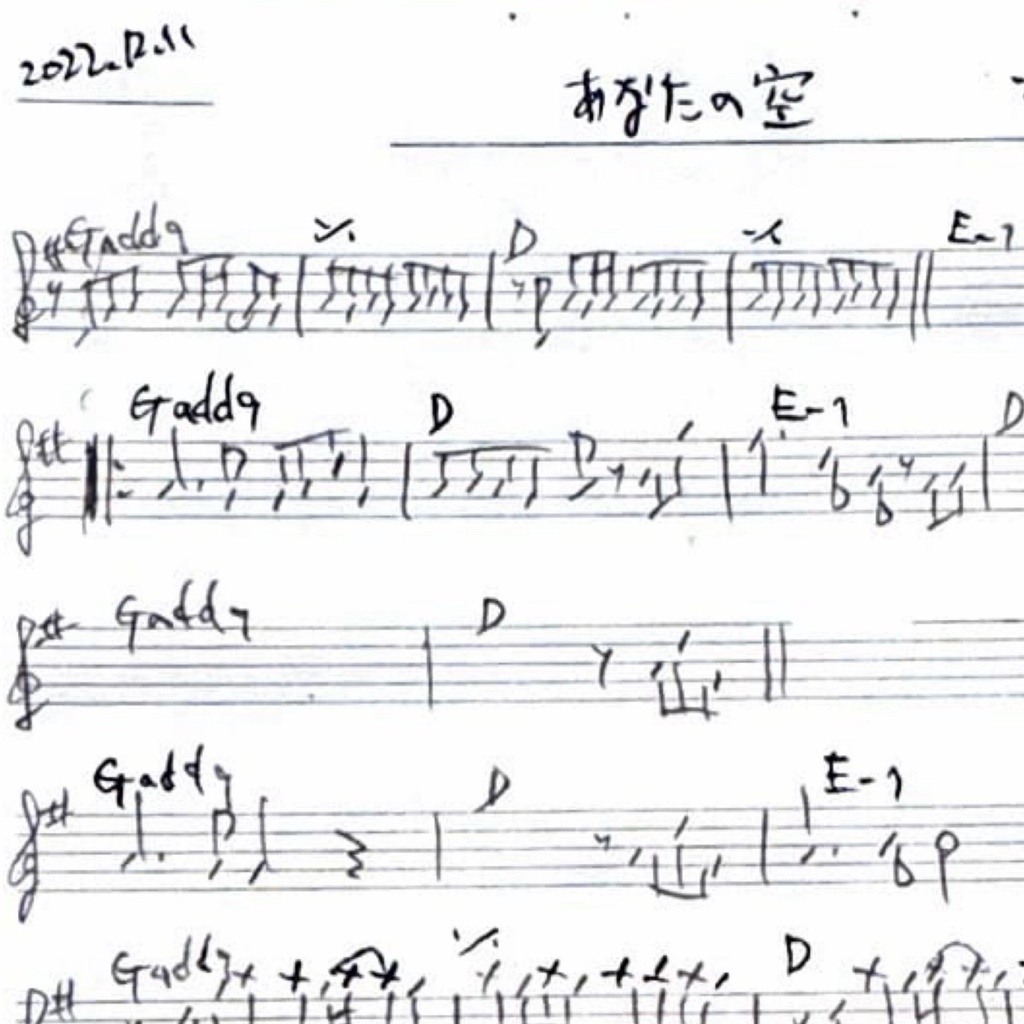 2022.12.11
あなたの空
Gadd9 D E-7
Gadd9 D E-7 D
Gadd9 D
Gadd9 D E-7
Gadd9 D